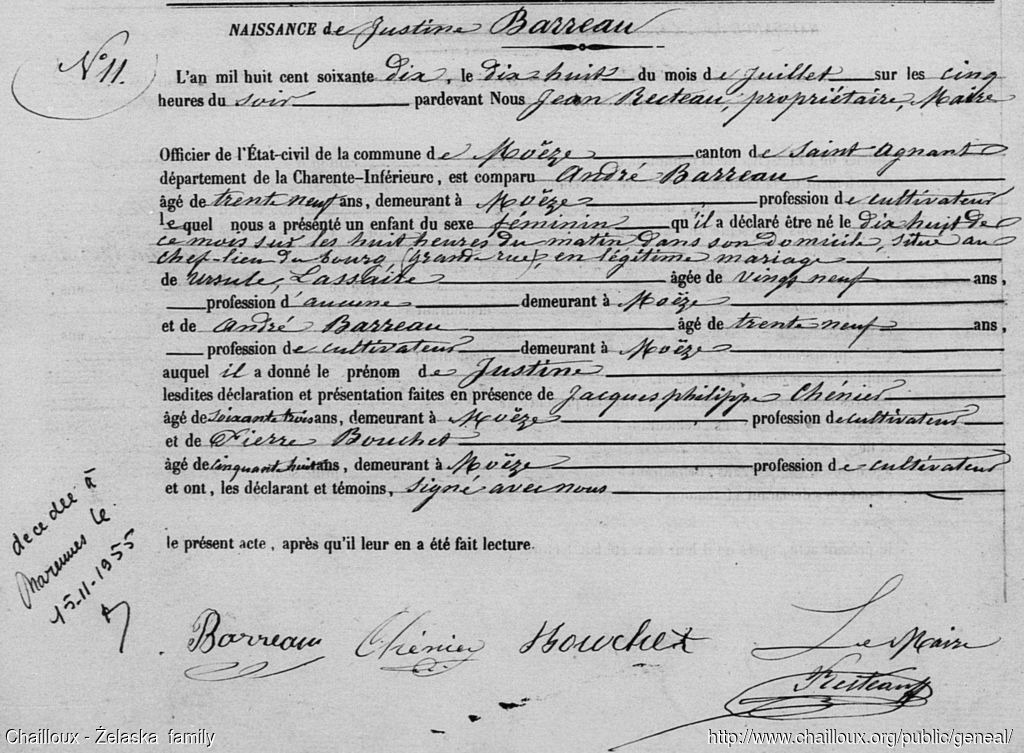 NAISSANCE de Justine Barreau
N° 11.
L'an mil huit cent soixante dix, le dix-huit du mois de Juillet sur les cinq
heures du soir pardevant Nous Jean Resteau, propriétaire, Maire
Officier de l'État-civil de la commune de Moëze canton de Saint Agnant
département de la Charente-Inférieure, est comparu André Barreau
âgé de trente neuf ans, demeurant à Moëze profession de cultivateur
lequel nous a présenté un enfant du sexe féminin qu'il a déclaré être né le dix huit de
ce mois sur les huit heures du matin dans son domicile, situé au
chef-lieu du bourg, (grande rue), en légitime mariage
de Ursule, Lassaire âgée de vingt neuf ans,
profession d'aucune demeurant à Moëze
et de André Barreau âgé de trente neuf ans,
profession de cultivateur demeurant à Moëze
auquel il a donné le prénom de Justine
lesdites déclaration et présentation faites en présence de Jacques philippe Chénier
âgé de soixante trois ans, demeurant à Moëze profession de cultivateur
et de Pierre Bouchet
âgé de cinquante huit ans, demeurant à Moëze profession de cultivateur
et ont, les déclarant et témoins, signé avec nous
le présent acte, après qu'il leur en a été fait lecture.
decedée à
Marennes le
15-11-1955
Barreau Chénier Bouchet Le Maire
Resteau
Chailloux - Żelaska family http://www.chailloux.org/public/geneal/